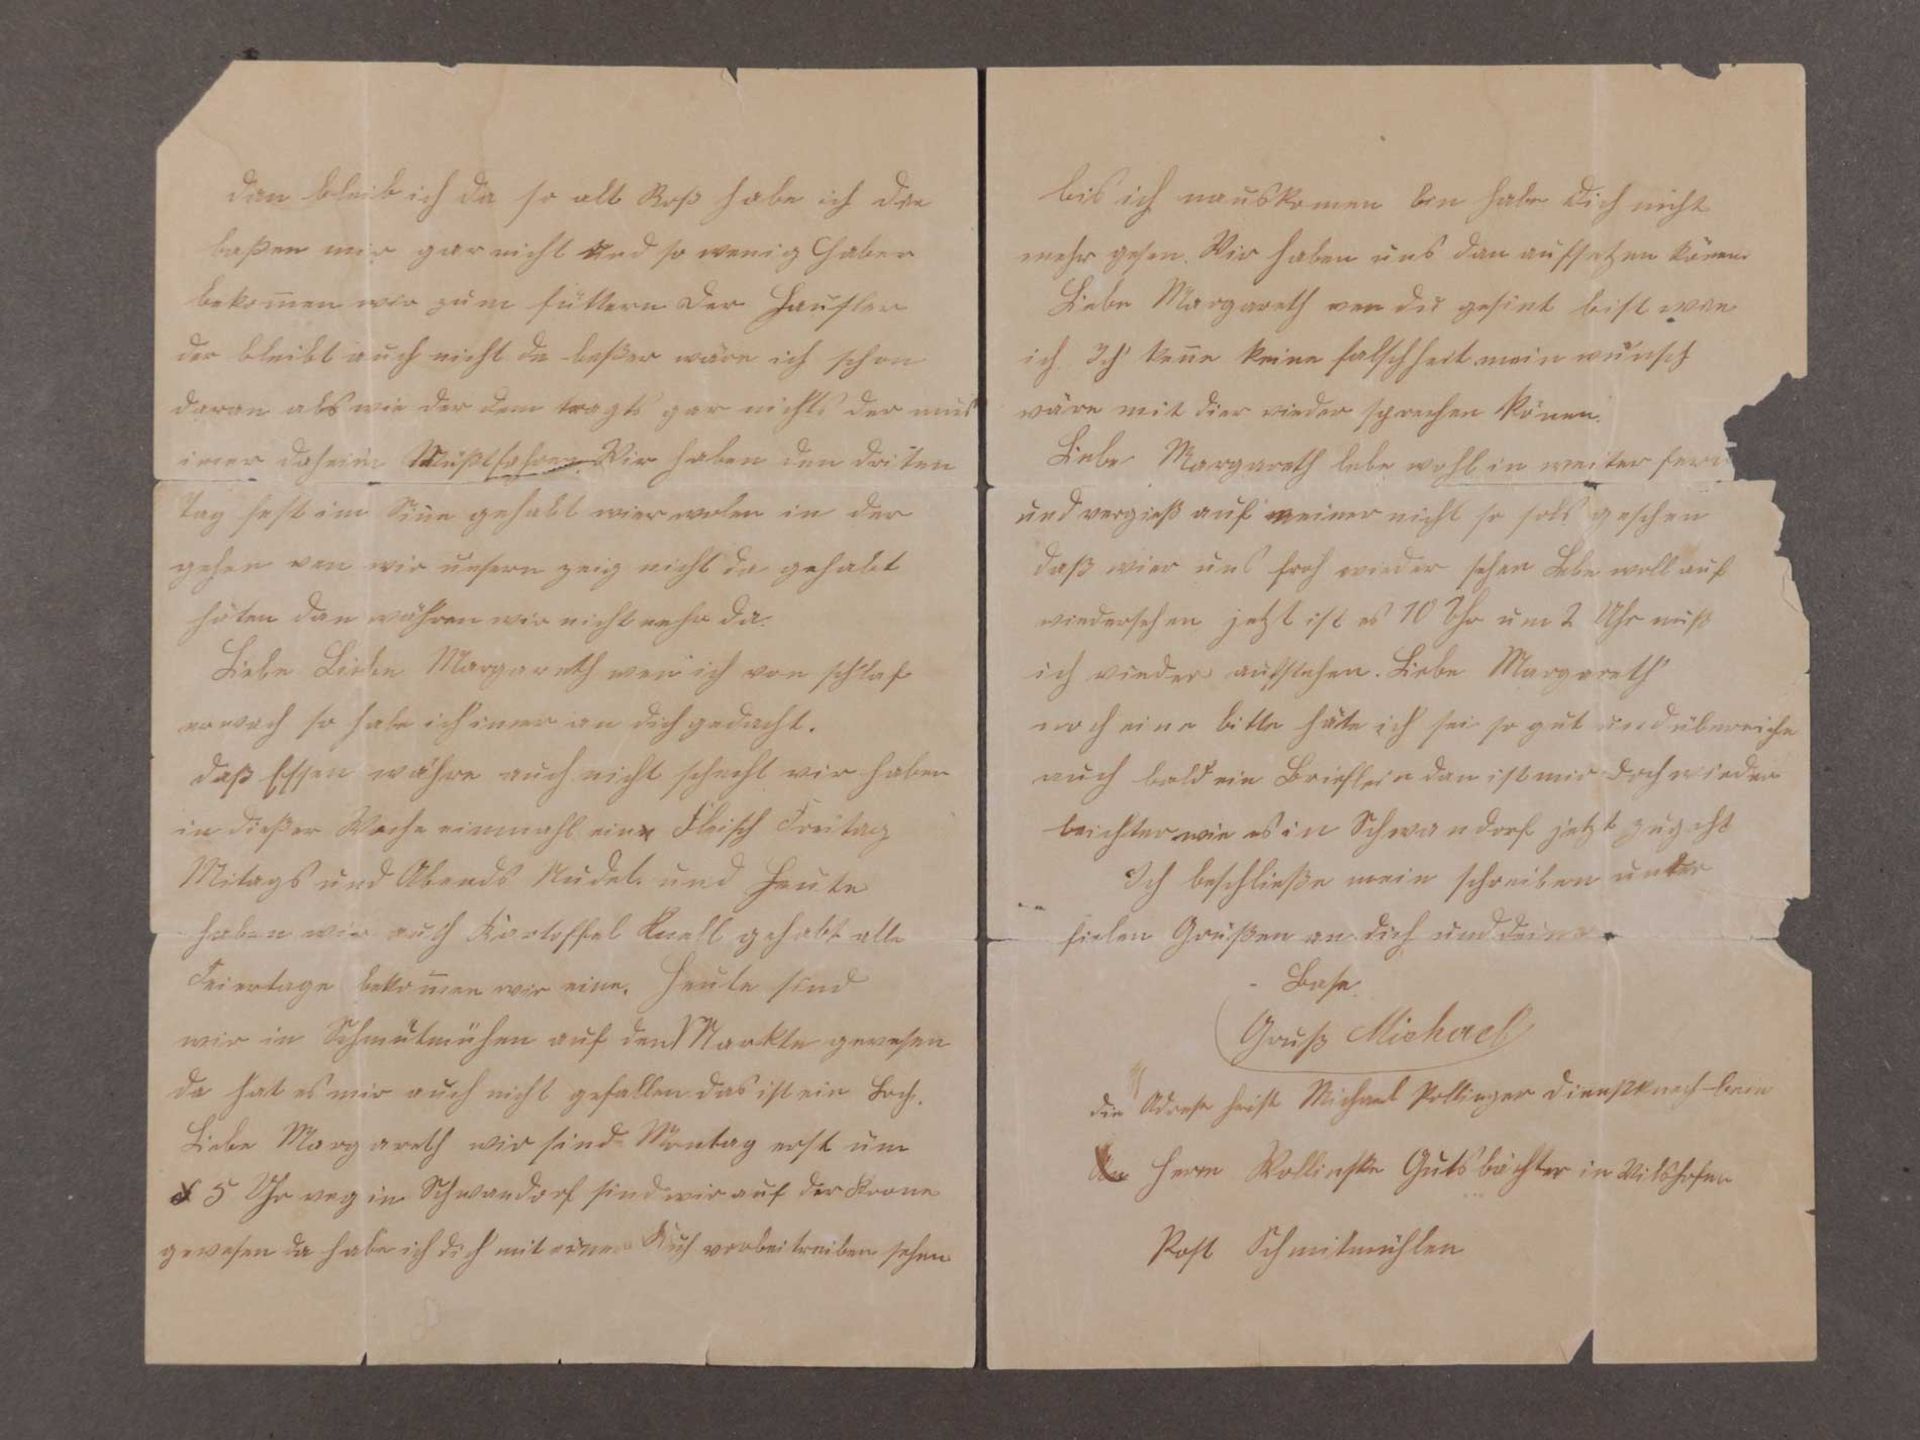 dan bleib ich da so alt Roß habe ich die
baßen mir gar nicht und so wenig Haber
bekomen wir zum füttern der Häusler
der bleibt auch nicht da beßer wäre ich schon
daran als wie der dem tragts gar nichts der mus
imer daheim Mistfahren Wir haben den driten
Tag fest im Sine gehabt wier wolen in der
gehen wen wir unsern zeig nicht da gehabt
häten dan währen wir nicht mehr da.
Liebe Liebe Margareth wen ich von schlaf
erwach so habe ich imer an dich gedacht.
daß Essen währe auch nicht schecht wir haben
in dießer Woche einmahl ein Fleisch Freitag
Mitags und Abends Nudel. und Heute
haben wir auch Kartoffel Knell gehabt alle
Feiertage bekomen wir eine. Heute sind
wir in Schmutmühen auf den Markte gewesen
da hat es mir auch nicht gefallen das ist ein Loch.
Liebe Margareth wir sind Montag erst um
5 Uhr weg in Schwandorf sind wir auf der Krone
gewesen da habe ich dich mit einer Kuh vorbei treiben sehen
bis ich nauskomen bin habe dich nicht
mehr gesen. Wir haben uns dan aufsetzen könen
Liebe Margareth wen du gesint bist wie
ich Ich kene keine falschheit mein wunsch
wäre mit dier wieder sprechen könen.
Liebe Margareth lebe wohl in weiter fern
und vergieß auf meiner nicht so sols geschen
daß wier uns froh wieder sehen Lebe woll auf
wiedersehen jetzt ist es 10 Uhr um 2 Uhr muß
ich wieder aufstehen. Liebe Margareth
noch eine bitte häte ich sei so gut und überreiche
auch bald ein Brieflein dan ist mir doch wieder
leichter wie es in Schwandorf jetzt zugeht
Ich beschließe mein schreiben unter
fielen Grüßen an dich und deine
Base
Gruß Michael
die Adrese heist Michael Pollinger Dienstknecht bein
Herrn Wollinske Gutsbächter in Vilshofen
Post Schmitmühlen